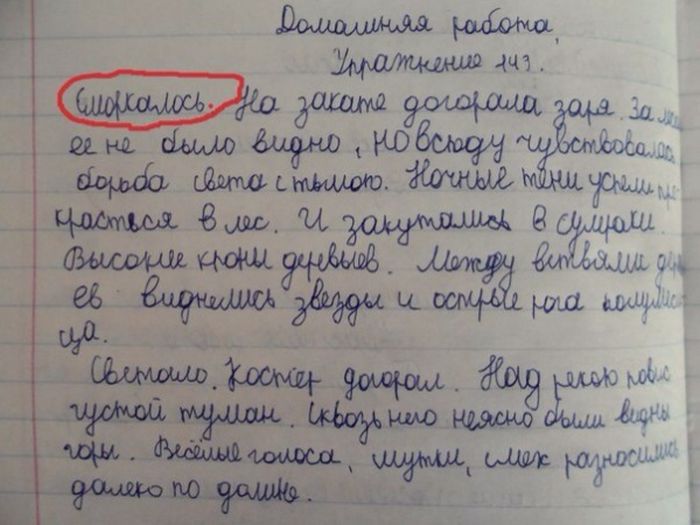 Домашняя работа,
Упражнение 143.
Сморкалось. На закате догорала заря. За
ее не было видно, но всюду чувствовалась
борьба света с тьмою. Ночные тени успели
красться в лес. И закутались в сумраки.
Высокие кроны деревьев. Между ветвями
ев виднелись звезды и острые рога полумеся
ца.
Светало. Костер догорал. Над рекою повис
густой туман. Сквозь него неясно были видны
горы. Весёлые голоса, шутки, смех разносились
далеко по долине.